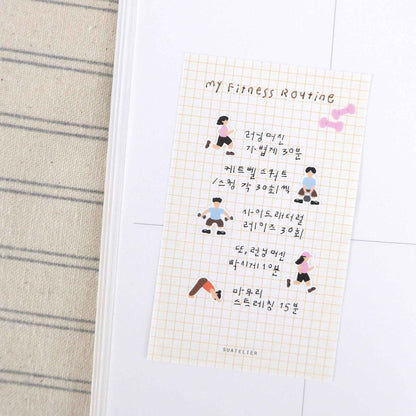 my Fitness Routine
러닝머신
가볍게 30분
케트벨 스쿼트
/스윙 각 30회씩
사이드래터럴
레이즈 30회
또, 러닝머신
빡시게 10분
마무리
스트레칭 15분
SUATELIER